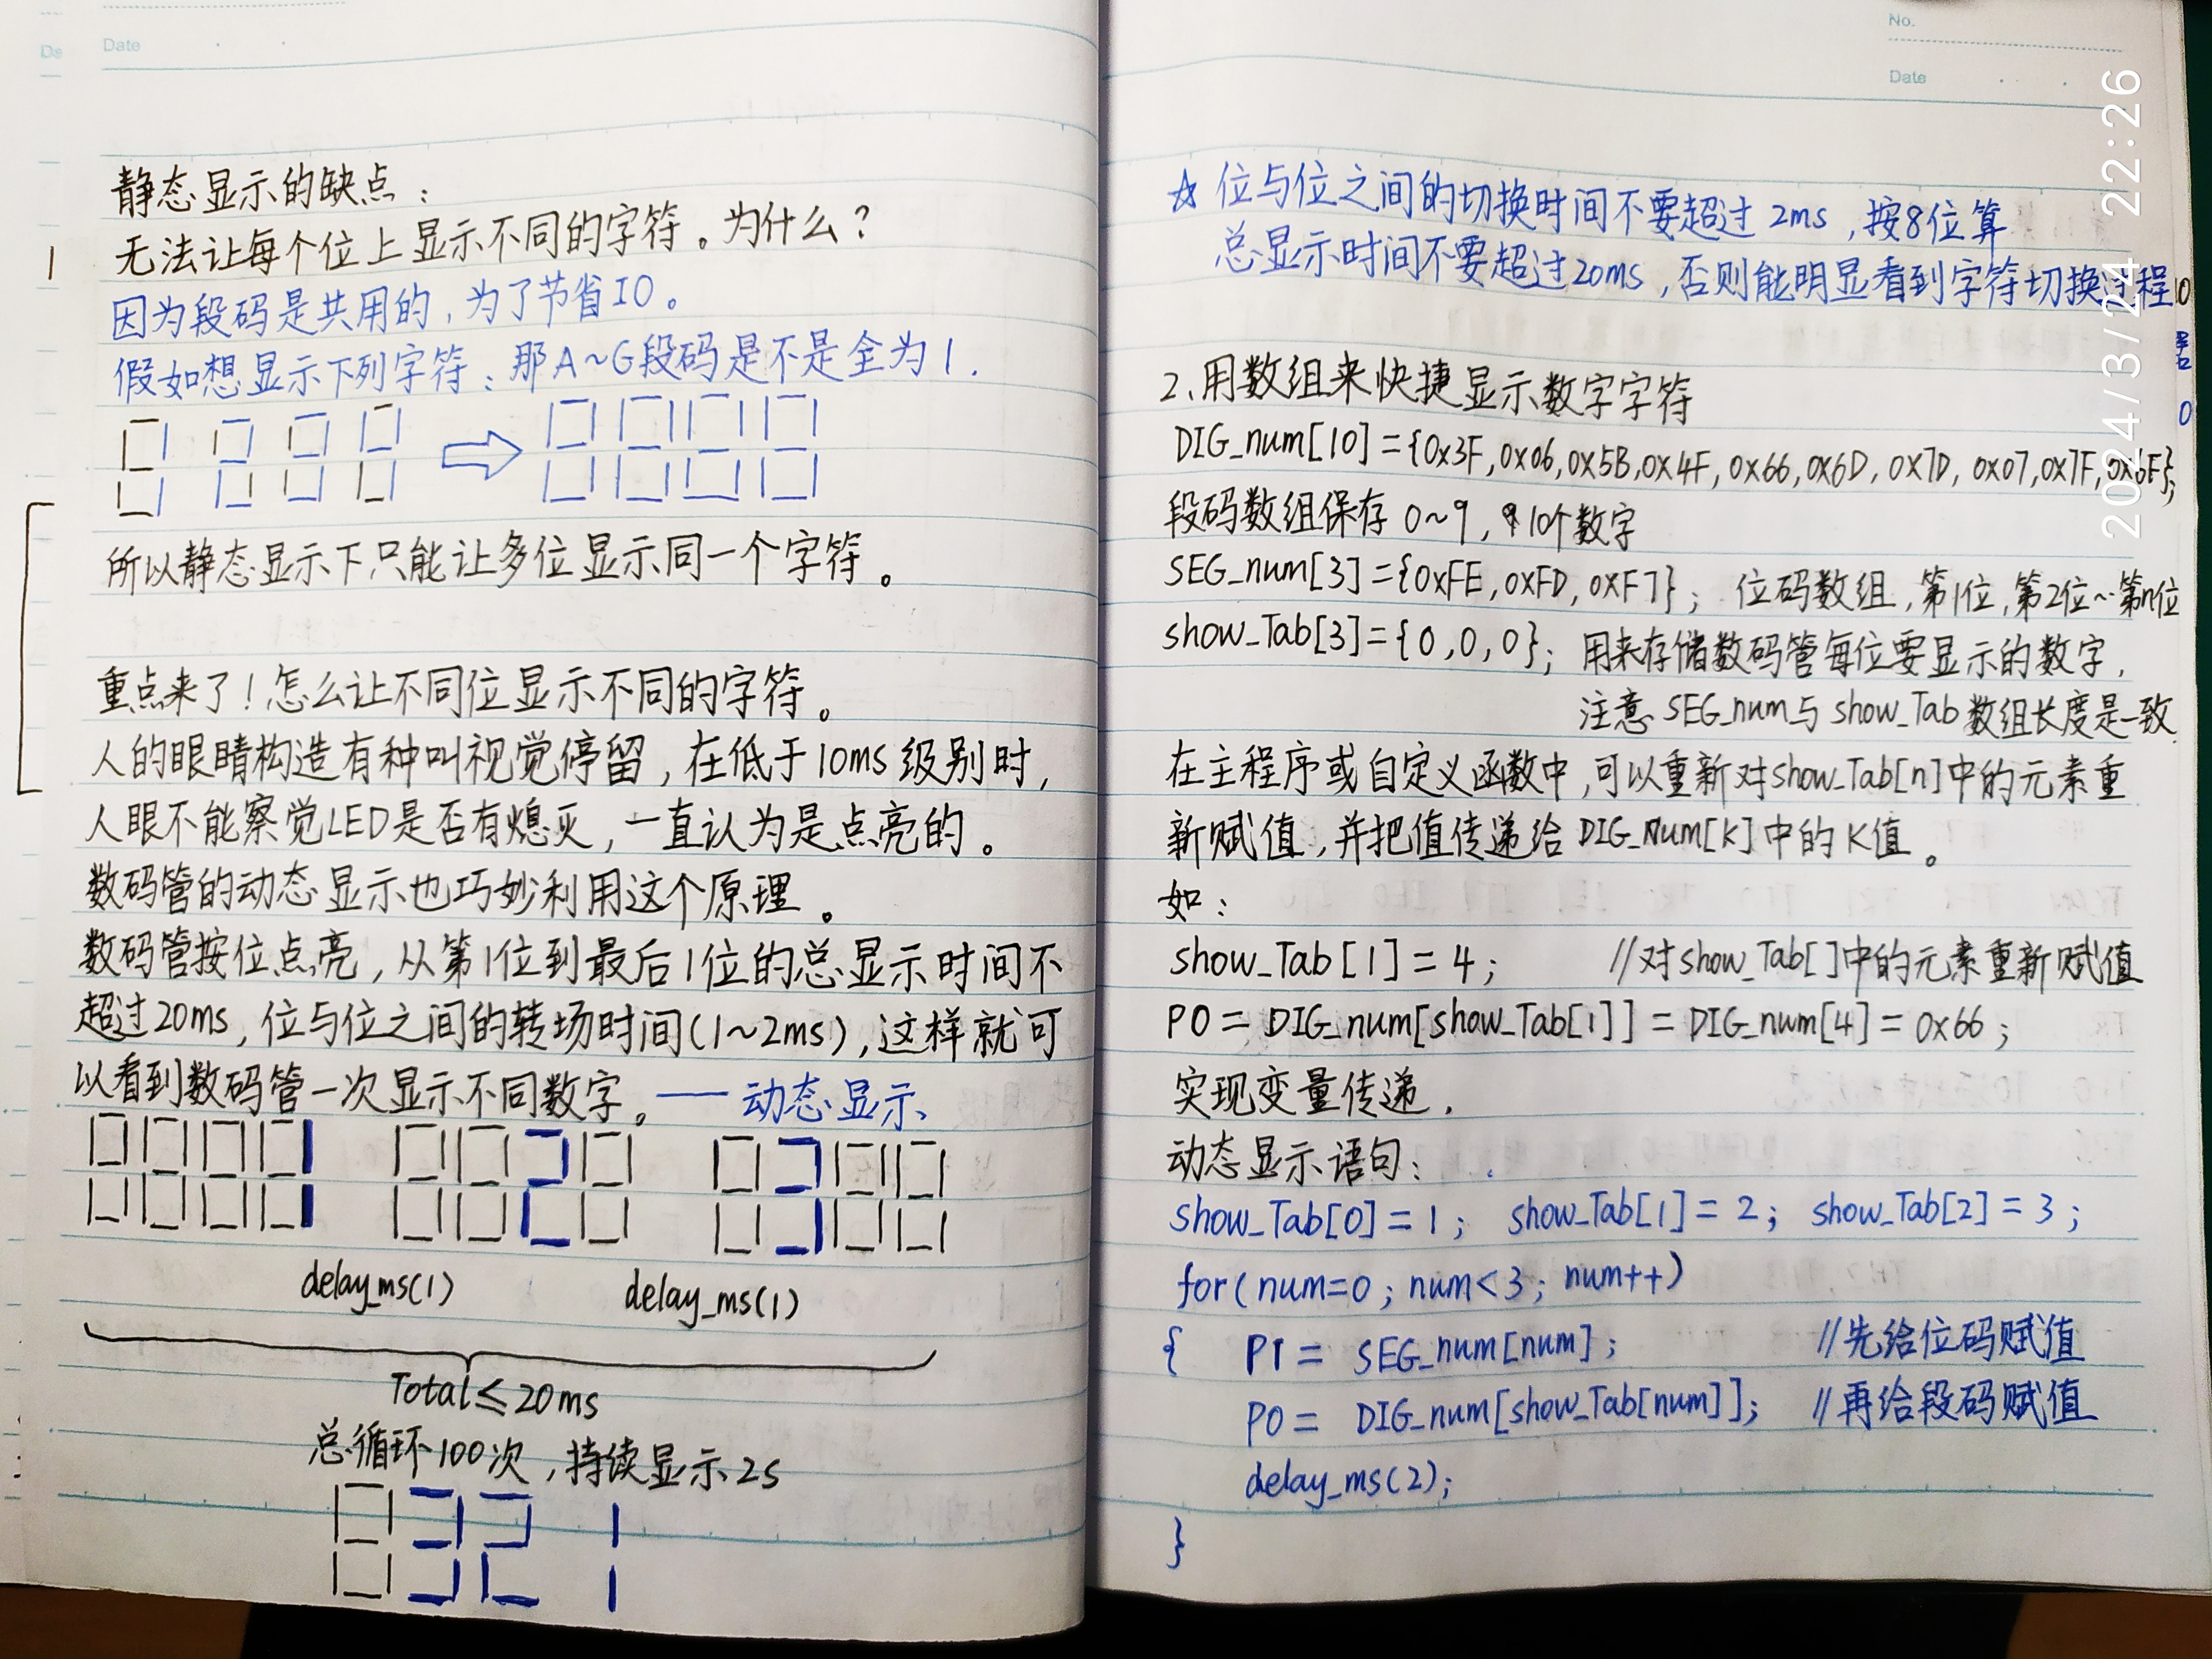 Date
静态显示的缺点：
无法让每个位上显示不同的字符。为什么？
因为段码是共用的，为了节省IO。
假如想显示下列字符：那A~G段码是不是全为1.
所以静态显示下只能让多位显示同一个字符。
重点来了！怎么让不同位显示不同的字符。
人的眼睛构造有种叫视觉停留，在低于10ms级别时，
人眼不能察觉LED是否有熄灭，一直认为是点亮的。
数码管的动态显示也巧妙利用这个原理。
数码管按位点亮，从第1位到最后1位的总显示时间不
超过20ms，位与位之间的转场时间(1~2ms)，这样就可
以看到数码管一次显示不同数字。——动态显示
delay_ms(1) delay_ms(1)
Total≤20ms
总循环100次，持续显示2s
321
No.
Date
☆ 位与位之间的切换时间不要超过2ms，按8位算
总显示时间不要超过20ms，否则能明显看到字符切换过程
2、用数组来快捷显示数字字符
DIG_num[10]={0x3F,0x06,0x5B,0x4F,0x66,0x6D,0x7D,0x07,0x7F,0x6F};
段码数组保存0~9，10个数字
SEG_num[3]={0xFE,0xFD,0xF7}; 位码数组，第1位，第2位~第n位
show_Tab[3]={0,0,0}; 用来存储数码管每位要显示的数字，
注意SEG_num与show_Tab数组长度是一致
在主程序或自定义函数中，可以重新对show_Tab[n]中的元素重
新赋值，并把值传递给DIG_num[K]中的K值。
如：
show_Tab[1]=4; //对show_Tab[]中的元素重新赋值
P0=DIG_num[show_Tab[1]]=DIG_num[4]=0x66;
实现变量传递.
动态显示语句：
show_Tab[0]=1; show_Tab[1]=2; show_Tab[2]=3;
for(num=0;num<3;num++)
{ P1= SEG_num[num]; //先给位码赋值
P0= DIG_num[show_Tab[num]]; //再给段码赋值
delay_ms(2);
}
2024/3/24 22:26